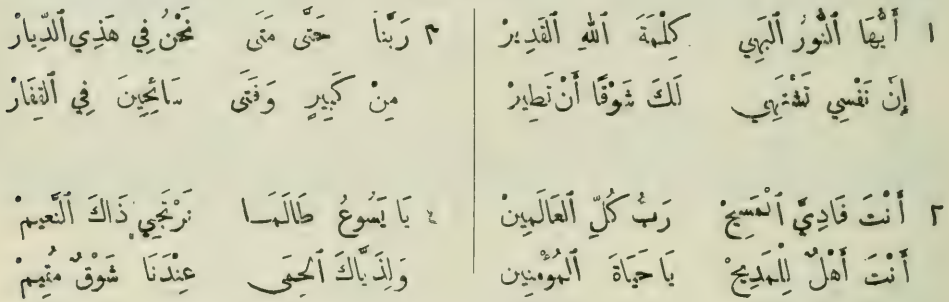 ١ أَيُّهَا ٱلنُّورُ ٱلْبَهِي كِلْمَةَ ٱللهِ ٱلْقَدِيرْ
إِنَّ نَفْسِي تَشْتَهِي لَكَ شَوْقًا أَنْ تَطِيرْ
٢ أَنْتَ فَادِيَّ ٱلْمَسِيحْ رَبُّ كُلِّ ٱلْعَالَمِينْ
أَنْتَ أَهْلٌ لِلْمَدِيحْ يَا حَيَاةَ ٱلْمُؤْمِنِينْ
٣ رَبَّنَا حَتَّى مَتَى نَحْنُ فِي هَذِي ٱلدِّيَارْ
مِنْ كَبِيرٍ وَفَتَى سَائِحِينَ فِي ٱلْقِفَارْ
٤ يَا يَسُوعُ طَالَمَا نَرْتَجِي ذَاكَ ٱلنَّعِيمْ
وَلِذَيَّاكَ ٱلْحِمَى عِنْدَنَا شَوْقٌ مُقِيمْ